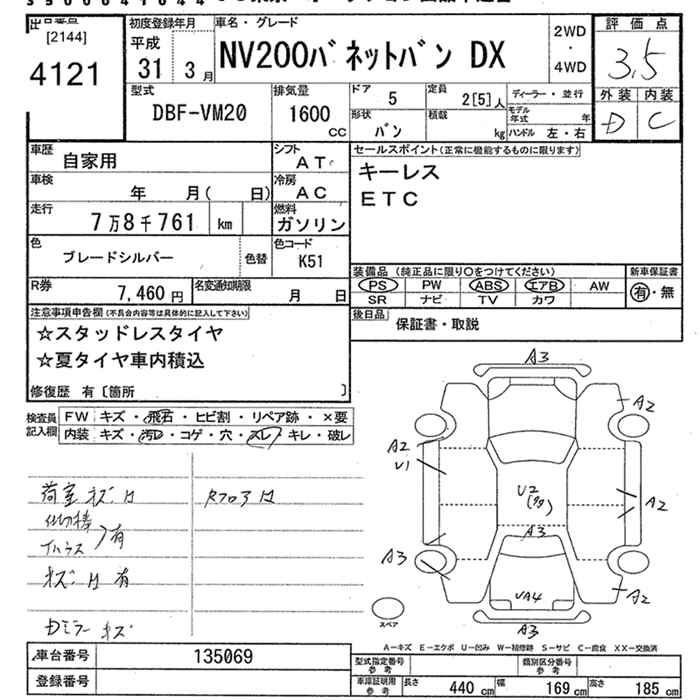 [2144]
4121
初度登録年月
平成
31 3月
車名・グレード
NV200バネットバン DX
2WD
・
4WD
評価点
3.5
外装 内装
D C
型式
DBF-VM20
排気量
1600
CC
ドア
5
定員
2[5]人
形状
バン
積載
kg
ディーラー・並行
モデル
年式 年
ハンドル 左・右
車歴
自家用
シフト
AT
車検
年 月( 日)
冷房
AC
走行
7万8千761 km
燃料
ガソリン
色
ブレードシルバー
色替
色コード
K51
R券
7,460円
名変通知期限
月 日
セールスポイント(正常に機能するものに限ります)
キーレス
ETC
装備品 (純正品に限り○をつけてください)
新車保証書
PS PW ABS エアB AW
SR ナビ TV カワ
有・無
後日品
保証書・取説
注意事項申告欄(不具合内容等は具体的に記入して下さい)
☆スタッドレスタイヤ
☆夏タイヤ車内積込
修復歴 有〔箇所 〕
検査員
記入欄
FW キズ・飛石・ヒビ割・リペア跡・×要
内装 キズ・汚れ・コゲ・穴・スレ・キレ・破レ
荷室キズ
有
キズ 有
Dミラーキズ
Rフロア
A3
A2
A2
U1
A2
U2
A3
A3
UA4
A2
A3
スペア
A-キズ E-エクボ U-凹み W-補修跡 S-サビ C-腐食 XX-交換済
車台番号
135069
登録番号
型式指定番号
参考
類別区分番号
参考
車庫証明用
参考
長さ 440cm 幅 169cm 高さ 185cm